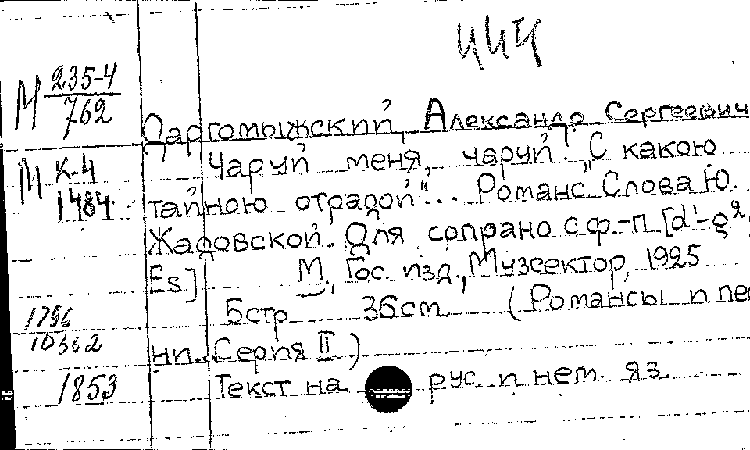 М 235-4
762
Даргомыжский, Александр Сергеевич
М К-4
1484
Чаруй меня, чаруй "С какою
тайною отрадой"... Романс. Слова Ю.
Жадовской. Для сопрано с ф.-п. [d¹-g²,
Es]
М., Гос. изд., Музсектор, 1925
5 стр. 36 см. (Романсы и пес
ни. Серия II)
1853
Текст на рус. и нем. яз.